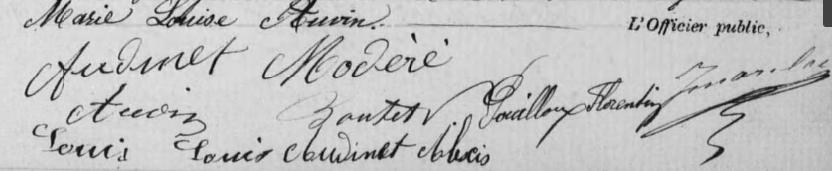 Marie Louise Auvin
L'Officier public,
Audinet Modéré
Auvin Boutet Pouilloux Florentin
Louis Louis Audinet Alexis